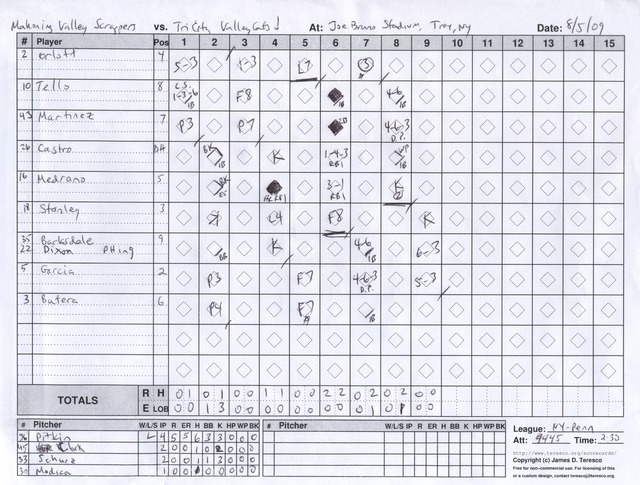 Mahoning Valley Scrappers vs. Tri City ValleyCats! At: Joe Bruno Stadium, Troy, NY Date: 8/5/09
# Player Pos 1 2 3 4 5 6 7 8 9 10 11 12 13 14 15
2 4 5-3 1-3 L7
10 Tello 8 1-3-6 1B F8 1B 4-6 1B
43 Martinez 7 P3 P7 2B 4-6-3 D.P.
26 Castro DH 1B K 1-4-3 RBI 1B
16 Medrano 5 3-1 RBI K
18 Stanley 3 L4 F8 K
35 Barksdale 9 BB K 4-6 1B 6-3
22 Dixon PHing
5 Garcia 2 P3 F7 4-6-3 D.P. 5-3
3 Butera 6 P4 F7 1B
TOTALS R H 0 1 0 1 0 0 1 1 0 0 2 2 0 2 0 2 0 0
E LOB 0 0 1 3 0 0 0 0 0 0
# Pitcher W/L/S IP R ER H BB K HP WP BK # Pitcher W/L/S IP R ER H BB K HP WP BK
36 Pitkin L 4 5 5 6 3 3 0 0 0
45 Clark 2 0 0 1 0 2 0 0 0
33 Schurz 2 0 0 1 1 3 0 0 0
30 Modica 1 0 0 0 0 0 0 0
League: NY-Penn
Att: 4445 Time: 2:30
http://www.teresco.org/scorecards/
Copyright (c) James D. Teresco
Free for non-commercial use. For licensing of this
or a custom design, contact teresco@teresco.org.